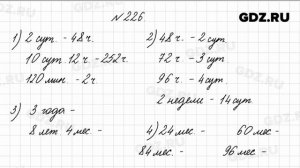 GDZ.RU
№226
1) 2 сут. - 48 ч.
10 сут 12 ч. - 252 ч.
120 мин. - 2 ч
2) 48 ч. - 2 сут.
72 ч. - 3 сут
96 ч - 4 сут.
2 недели - 14 сут.
3) 3 года -
8 лет 4 мес -
4) 24 мес. - 60 мес -
84 мес. - 96 мес -